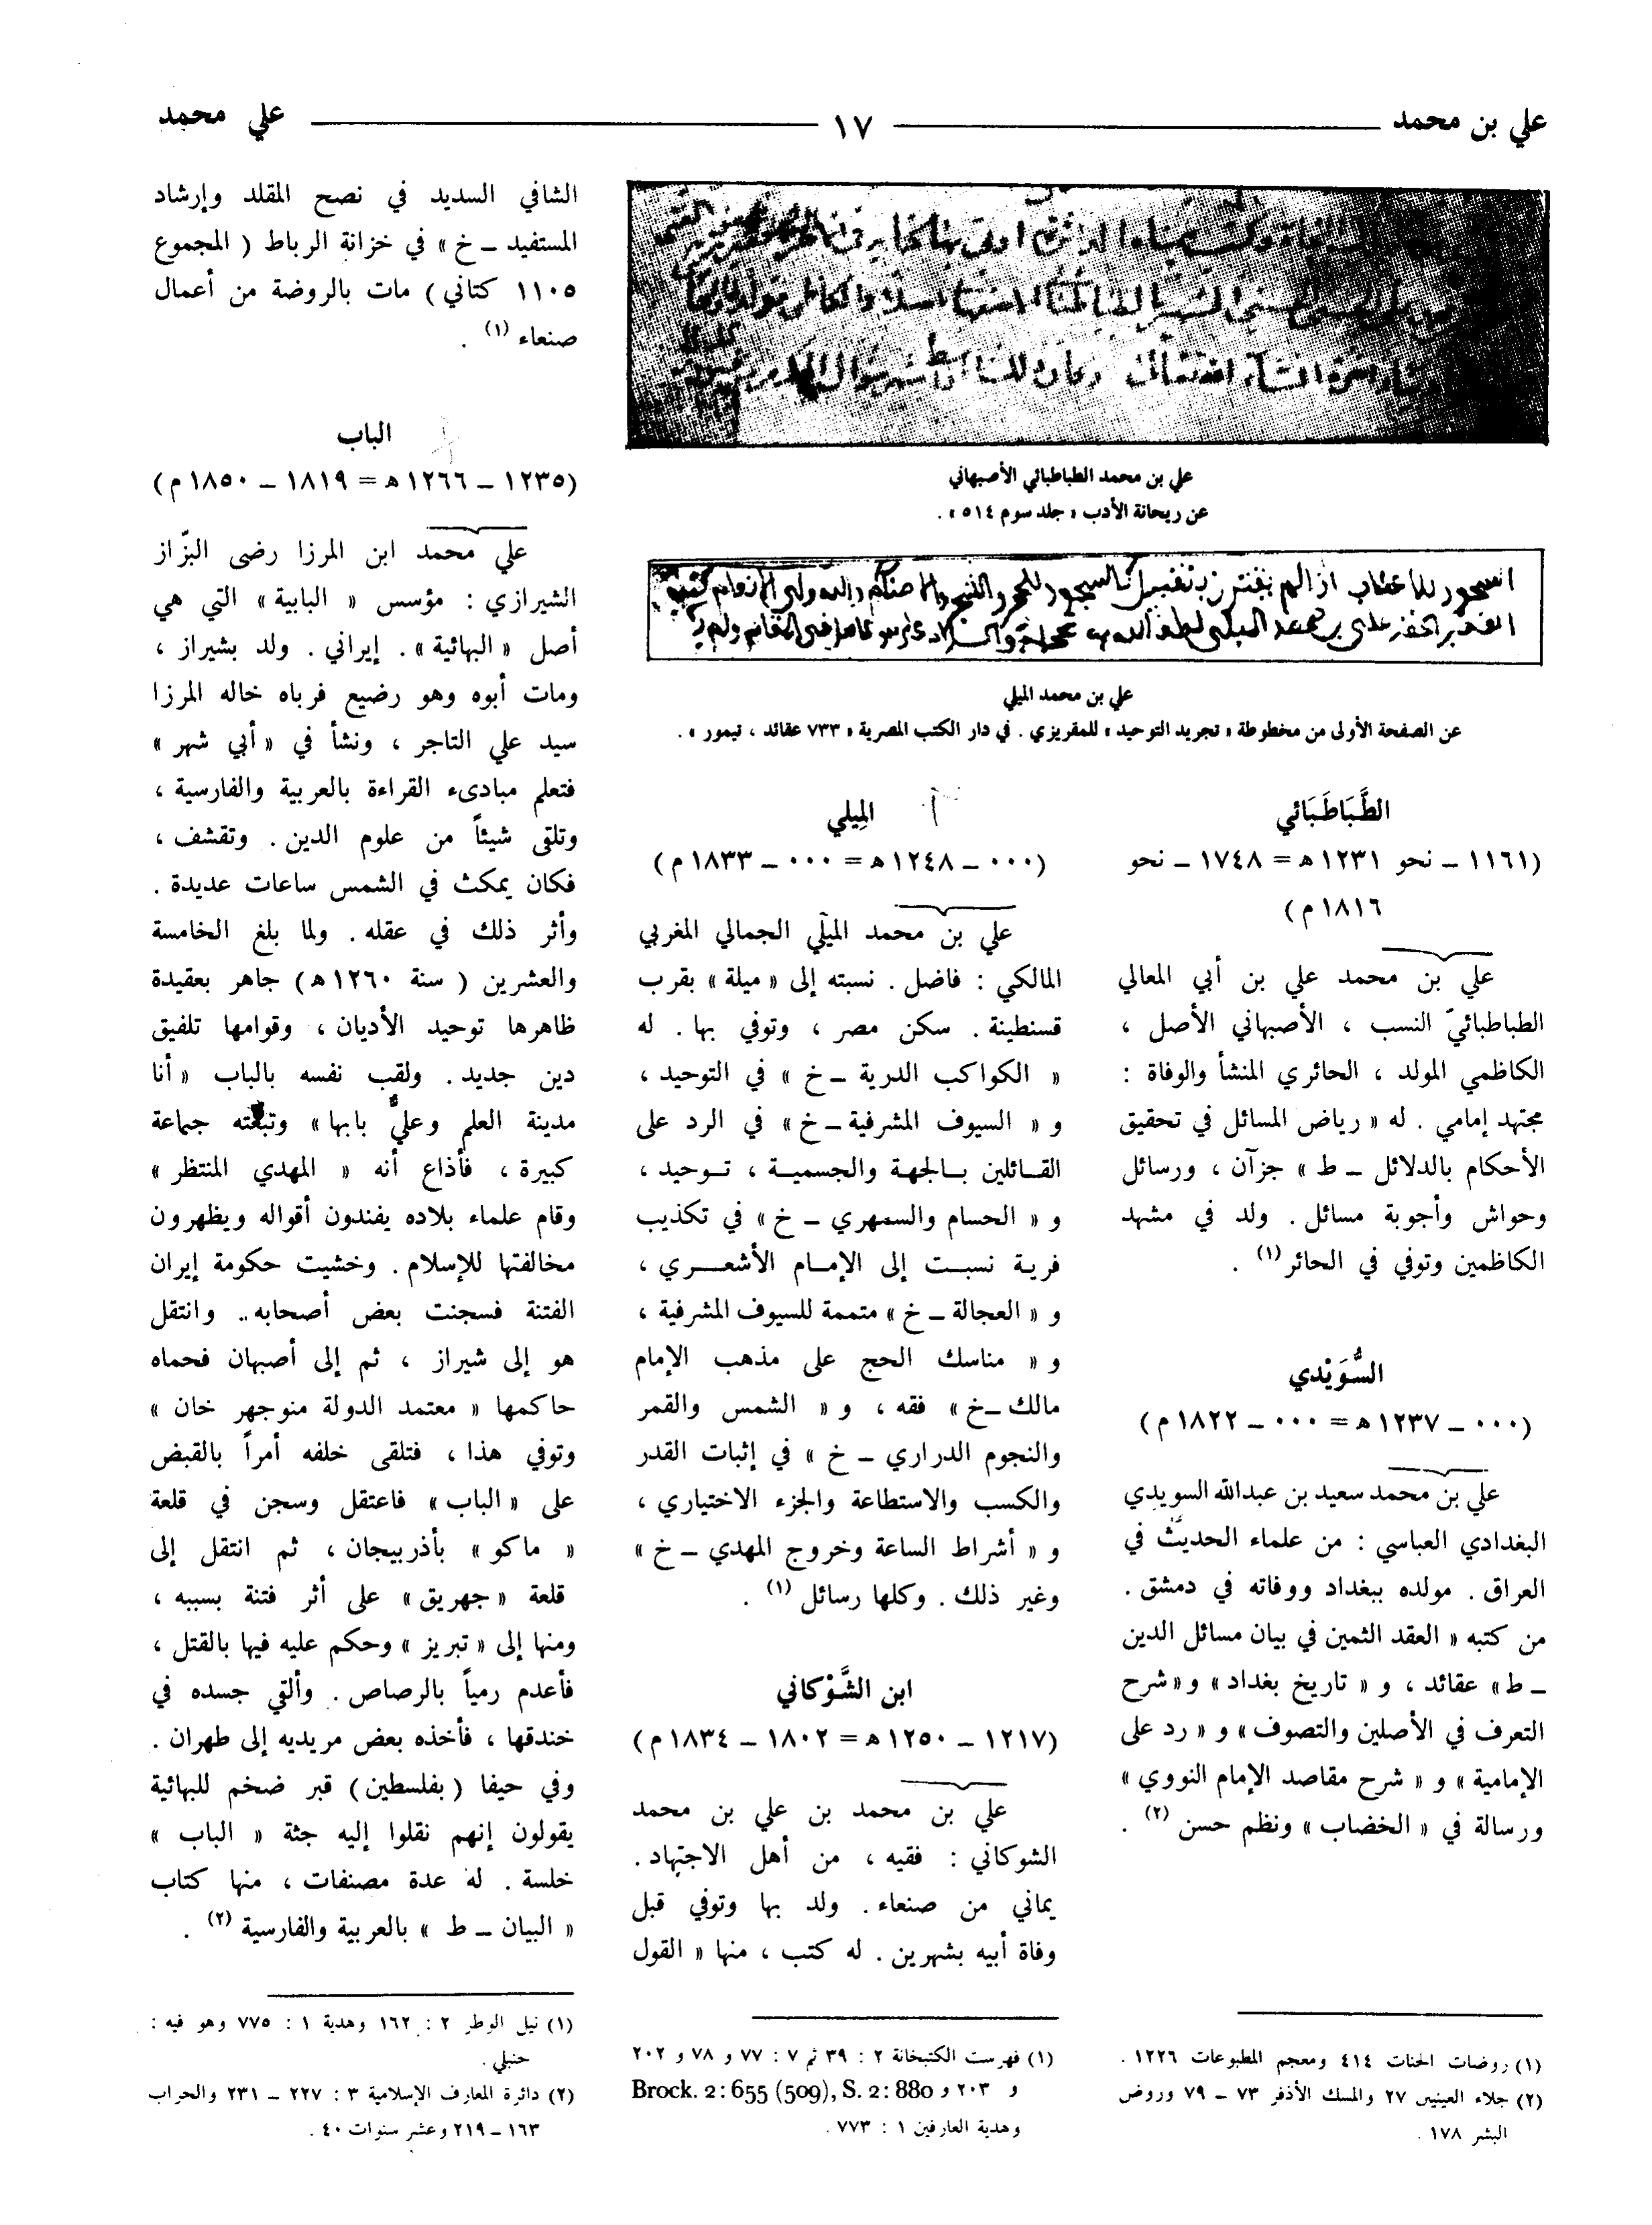 علي بن محمد ١٧ علي محمد
علي بن محمد الطباطبائي الأصبهاني
عن ريحانة الأدب « جلد سوم ٥١٤ » .
علي بن محمد الميلي
عن الصفحة الأولى من مخطوطة « تجريد التوحيد » للمقريزي . في دار الكتب المصرية « ٧٣٣ عقائد ، تيمور » .
الطَّبَاطَبَائي
(١١٦١ ــ نحو ١٢٣١ ه = ١٧٤٨ ــ نحو
١٨١٦ م)
علي بن محمد علي بن أبي المعالي
الطباطبائيّ النسب ، الأصبهاني الأصل ،
الكاظمي المولد ، الحائري المنشأ والوفاة :
مجتهد إمامي . له « رياض المسائل في تحقيق
الأحكام بالدلائل ــ ط » جزآن ، ورسائل
وحواش وأجوبة مسائل . ولد في مشهد
الكاظمين وتوفي في الحائر (١) .
السُّوَيْدي
(٠٠٠ ــ ١٢٣٧ ه = ٠٠٠ ــ ١٨٢٢ م)
علي بن محمد سعيد بن عبدالله السويدي
البغدادي العباسي : من علماء الحديث في
العراق . مولده ببغداد ووفاته في دمشق .
من كتبه « العقد الثمين في بيان مسائل الدين
ــ ط » عقائد ، و « تاريخ بغداد » و « شرح
التعرف في الأصلين والتصوف » و « رد على
الإمامية » و « شرح مقاصد الإمام النووي »
ورسالة في « الخضاب » ونظم حسن (٢) .
(١) روضات الجنات ٤١٤ ومعجم المطبوعات ١٢٢٦ .
(٢) جلاء العينين ٢٧ والمسك الأذفر ٧٣ ــ ٧٩ وروض
البشر ١٧٨ .
المِيلي
(٠٠٠ ــ ١٢٤٨ ه = ٠٠٠ ــ ١٨٣٣ م)
علي بن محمد الميلي الجمالي المغربي
المالكي : فاضل . نسبته إلى « ميلة » بقرب
قسنطينة . سكن مصر ، وتوفي بها . له
« الكواكب الدرية ــ خ » في التوحيد ،
و « السيوف المشرفية ــ خ » في الرد على
القائلين بالجهة والجسمية ، توحيد ،
و « الحسام والسمهري ــ خ » في تكذيب
فرية نسبت إلى الإمام الأشعري ،
و « العجالة ــ خ » متممة للسيوف المشرفية ،
و « مناسك الحج على مذهب الإمام
مالك ــ خ » فقه ، و « الشمس والقمر
والنجوم الدراري ــ خ » في إثبات القدر
والكسب والاستطاعة والجزء الاختياري ،
و « أشراط الساعة وخروج المهدي ــ خ »
وغير ذلك . وكلها رسائل (١) .
ابن الشَّوْكاني
(١٢١٧ ــ ١٢٥٠ ه = ١٨٠٢ ــ ١٨٣٤ م)
علي بن محمد بن علي بن محمد
الشوكاني : فقيه ، من أهل الاجتهاد .
يماني من صنعاء . ولد بها وتوفي قبل
وفاة أبيه بشهرين . له كتب ، منها « القول
(١) فهرست الكتبخانة ٢ : ٣٩ ثم ٧ : ٧٧ و ٧٨ و ٢٠٢
و ٢٠٣ و Brock. 2: 655 (509), S. 2: 880
وهدية العارفين ١ : ٧٧٣ .
الشافي السديد في نصح المقلد وإرشاد
المستفيد ــ خ » في خزانة الرباط ( المجموع
١١٠٥ كتاني ) مات بالروضة من أعمال
صنعاء (١) .
الباب
(١٢٣٥ ــ ١٢٦٦ ه = ١٨١٩ ــ ١٨٥٠ م)
علي محمد ابن المرزا رضى البزّاز
الشيرازي : مؤسس « البابية » التي هي
أصل « البهائية » . إيراني . ولد بشيراز ،
ومات أبوه وهو رضيع فرباه خاله المرزا
سيد علي التاجر ، ونشأ في « أبي شهر »
فتعلم مبادىء القراءة بالعربية والفارسية ،
وتلقى شيئاً من علوم الدين . وتقشف ،
فكان يمكث في الشمس ساعات عديدة .
وأثر ذلك في عقله . ولما بلغ الخامسة
والعشرين ( سنة ١٢٦٠ ه ) جاهر بعقيدة
ظاهرها توحيد الأديان ، وقوامها تلفيق
دين جديد . ولقب نفسه بالباب « أنا
مدينة العلم وعليٌّ بابها » وتبعته جماعة
كبيرة ، فأذاع أنه « المهدي المنتظر »
وقام علماء بلاده يفندون أقواله ويظهرون
مخالفتها للإسلام . وخشيت حكومة إيران
الفتنة فسجنت بعض أصحابه .. وانتقل
هو إلى شيراز ، ثم إلى أصبهان فحماه
حاكمها « معتمد الدولة منوجهر خان »
وتوفي هذا ، فتلقى خلفه أمراً بالقبض
على « الباب » فاعتقل وسجن في قلعة
« ماكو » بأذربيجان ، ثم انتقل إلى
قلعة « جهريق » على أثر فتنة بسببه ،
ومنها إلى « تبريز » وحكم عليه فيها بالقتل ،
فأعدم رمياً بالرصاص . وألقي جسده في
خندقها ، فأخذه بعض مريديه إلى طهران .
وفي حيفا ( بفلسطين ) قبر ضخم للبهائية
يقولون إنهم نقلوا إليه جثة « الباب »
خلسة . له عدة مصنفات ، منها كتاب
« البيان ــ ط » بالعربية والفارسية (٢) .
(١) نيل الوطر ٢ : ١٦٢ وهدية ١ : ٧٧٥ وهو فيه :
حنبلي .
(٢) دائرة المعارف الإسلامية ٣ : ٢٢٧ ــ ٢٣١ والحراب
١٦٣ ــ ٢١٩ وعشر سنوات ٤٠ .